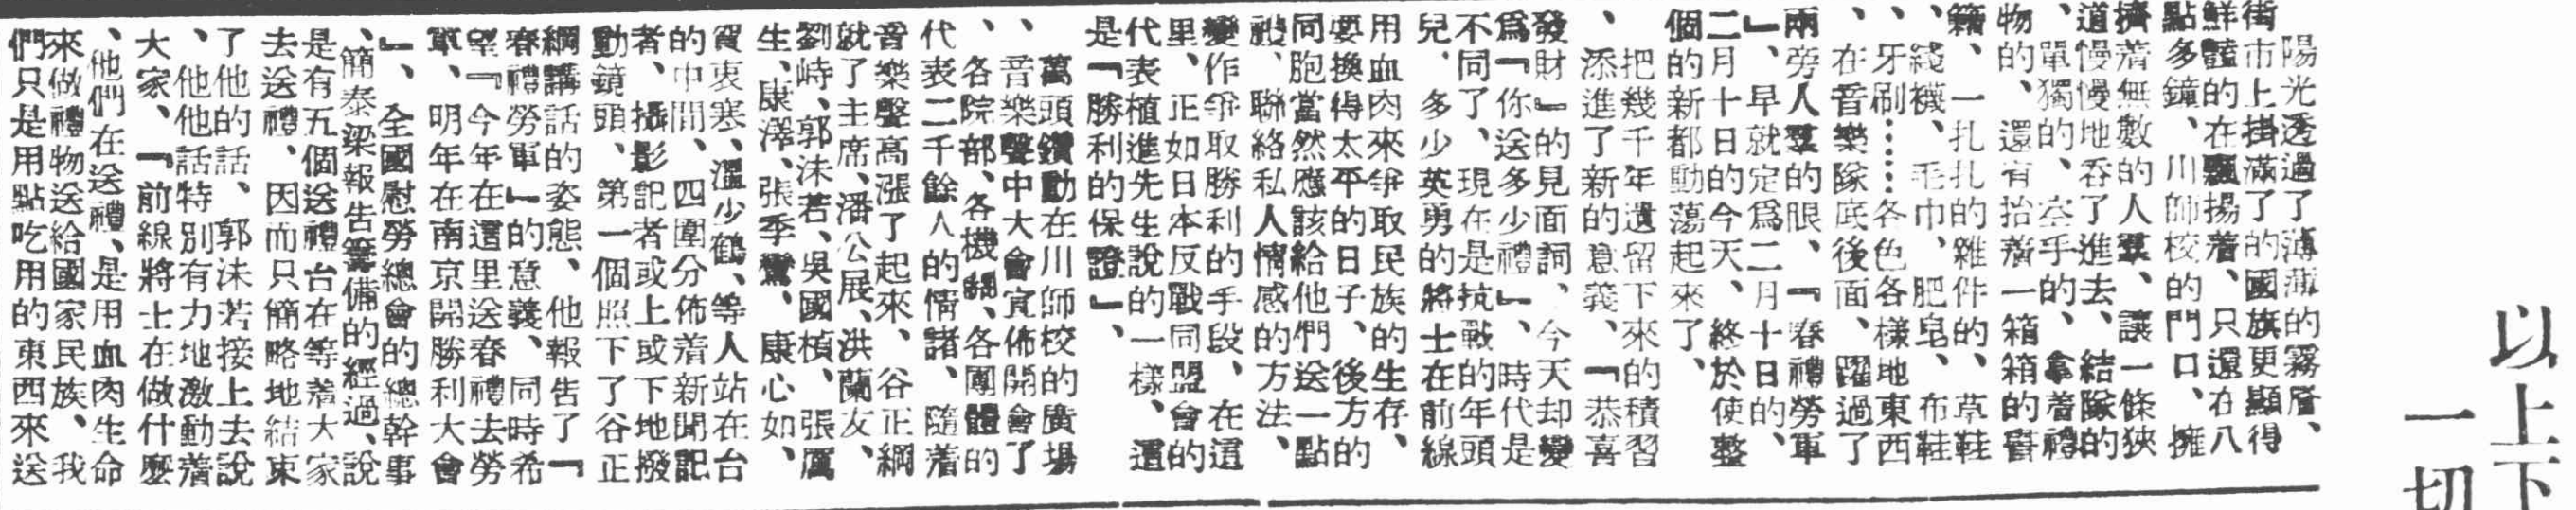 以上下
一切
陽光透過了薄薄的霧層、
街市上掛滿了的國旗更顯得
鮮豔的在飄揚着、只還在八
點多鐘、川師校的門口、擁
擠着無數的人羣、讓一條狹
道慢慢地吞了進去、結隊的
、單獨的、空手的、拿着禮
物的、還有抬着一箱箱的書
籍、一扎扎的雜件的、草鞋
、綫襪、毛巾、肥皂、布鞋
、牙刷……各色各樣地東西
、在音樂隊底後面、躍過了
兩旁人羣的眼、『春禮勞軍
』、早就定爲二月十日的、
二月十日的今天、終於使整
個的新都動蕩起來了、
把幾千年遺留下來的積習
、添進了新的意義、『恭喜
發財』的見面詞、今天却變
爲『你送多少禮』、時代是
不同了、現在是抗戰的年頭
兒、多少英勇的將士在前線
用血肉來爭取民族的生存、
要換得太平的日子、後方的
同胞當然應該給他們送一點
禮、聯絡私人情感的方法、
變作爭取勝利的手段、在這
里、正如日本反戰同盟會的
代表植進先生說的一樣、還
是『勝利的保證』、
萬頭鑽動在川師校的廣場
、音樂聲中大會宣佈開會了
、各院部、各機關、各團體的
代表二千餘人的情諸、隨着
音樂聲高漲了起來、谷正綱
就了主席、潘公展、洪蘭友、
劉峙、郭沫若、吳國楨、張厲
生、康澤、張季鸞、康心如、
賀衷寒、溫少鶴、等人站在台
的中間、四圍分佈着新聞記
者、攝影記者或上或下地撥
動鏡頭、第一個照下了谷正
綱講話的姿態、他報告了『
春禮勞軍』的意義、同時希
望『今年在這里送春禮去勞
軍、明年在南京開勝利大會
』、全國慰勞總會的總幹事
、簡泰梁報告籌備的經過、說
是有五個送禮台在等着大家
去送禮、因而只簡略地結束
了他的話、郭沫若接上去說
、他他話特別有力地激動着
大家、『前線將士在做什麼
、他們在送禮、是用血肉生命
來做禮物送給國家民族、我
們只是用點吃用的東西來送